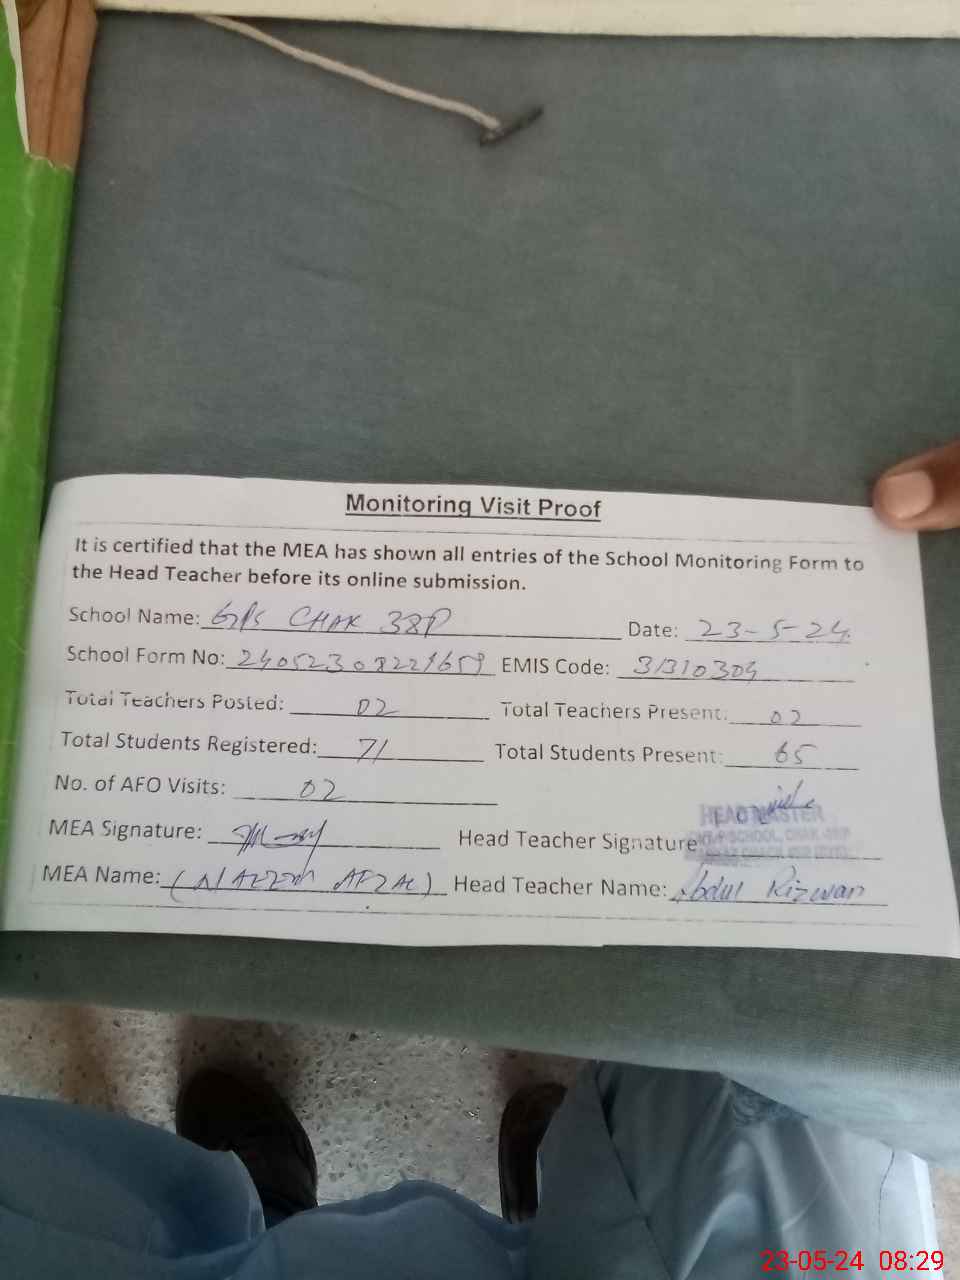 Monitoring Visit Proof
It is certified that the MEA has shown all entries of the School Monitoring Form to
the Head Teacher before its online submission.
School Name: GPS CHAK 38P Date: 23-5-24
School Form No: EMIS Code: 31310304
Total Teachers Posted: 02 Total Teachers Present: 02
Total Students Registered: 71 Total Students Present: 65
No. of AFO Visits: 02
MEA Signature: Head Teacher Signature
HEAD MASTER
SCHOOL, CHAK
MEA Name: ( AFZAL) Head Teacher Name: Abdul Rizwan
23-05-24 08:29